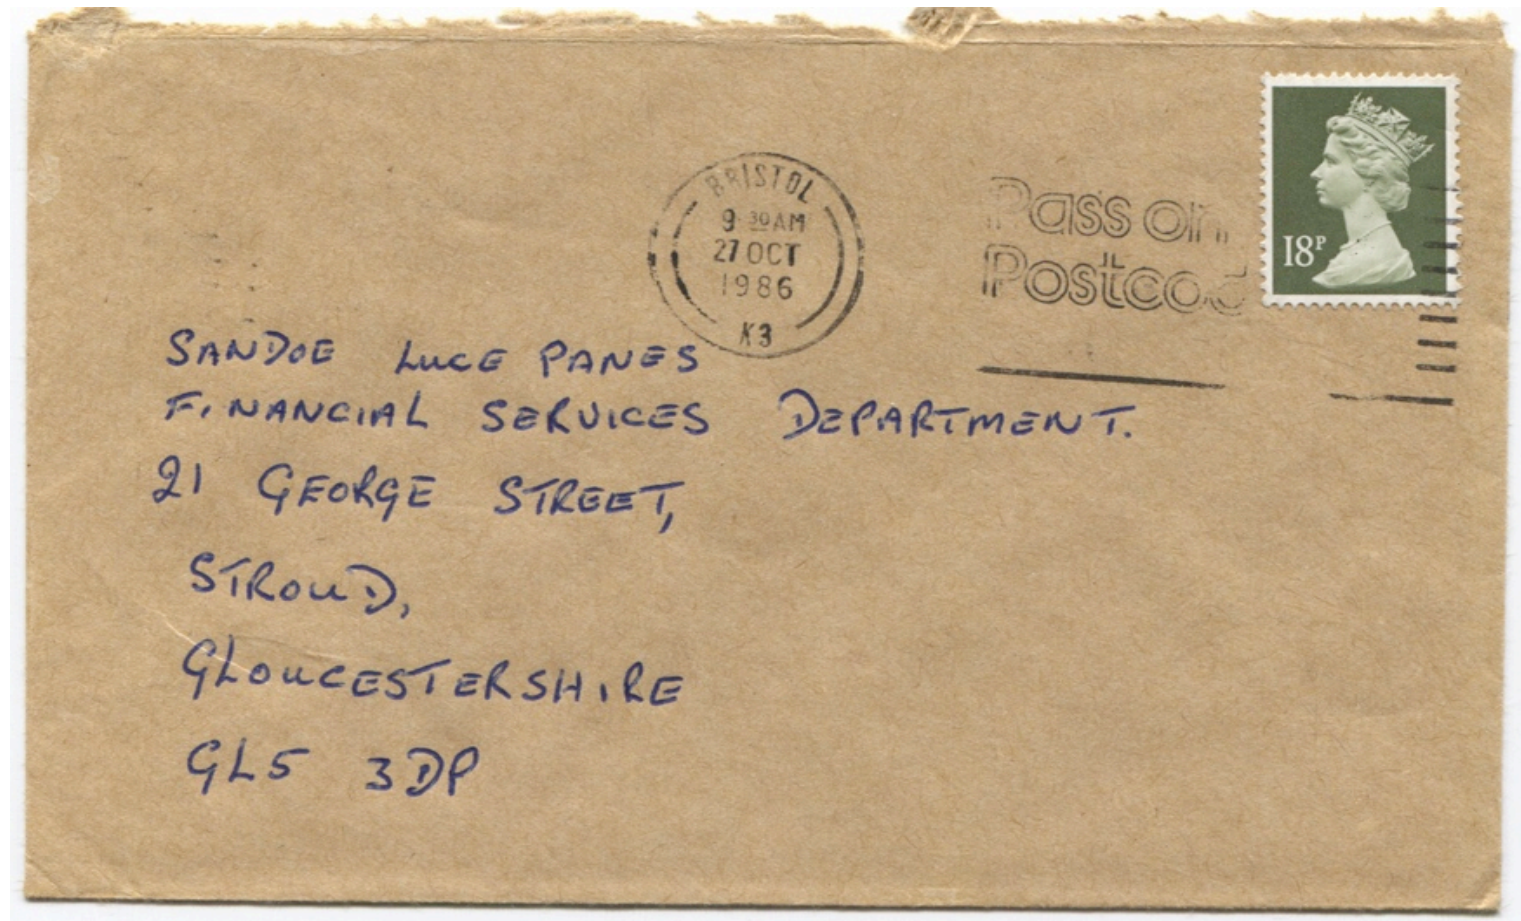 BRISTOL
9 30 AM
27 OCT
1986
K3
Pass on
Postcod
18P
SANDOE LUCE PANES
FINANCIAL SERVICES DEPARTMENT.
21 GEORGE STREET,
STROUD,
GLOUCESTERSHIRE
GL5 3DP